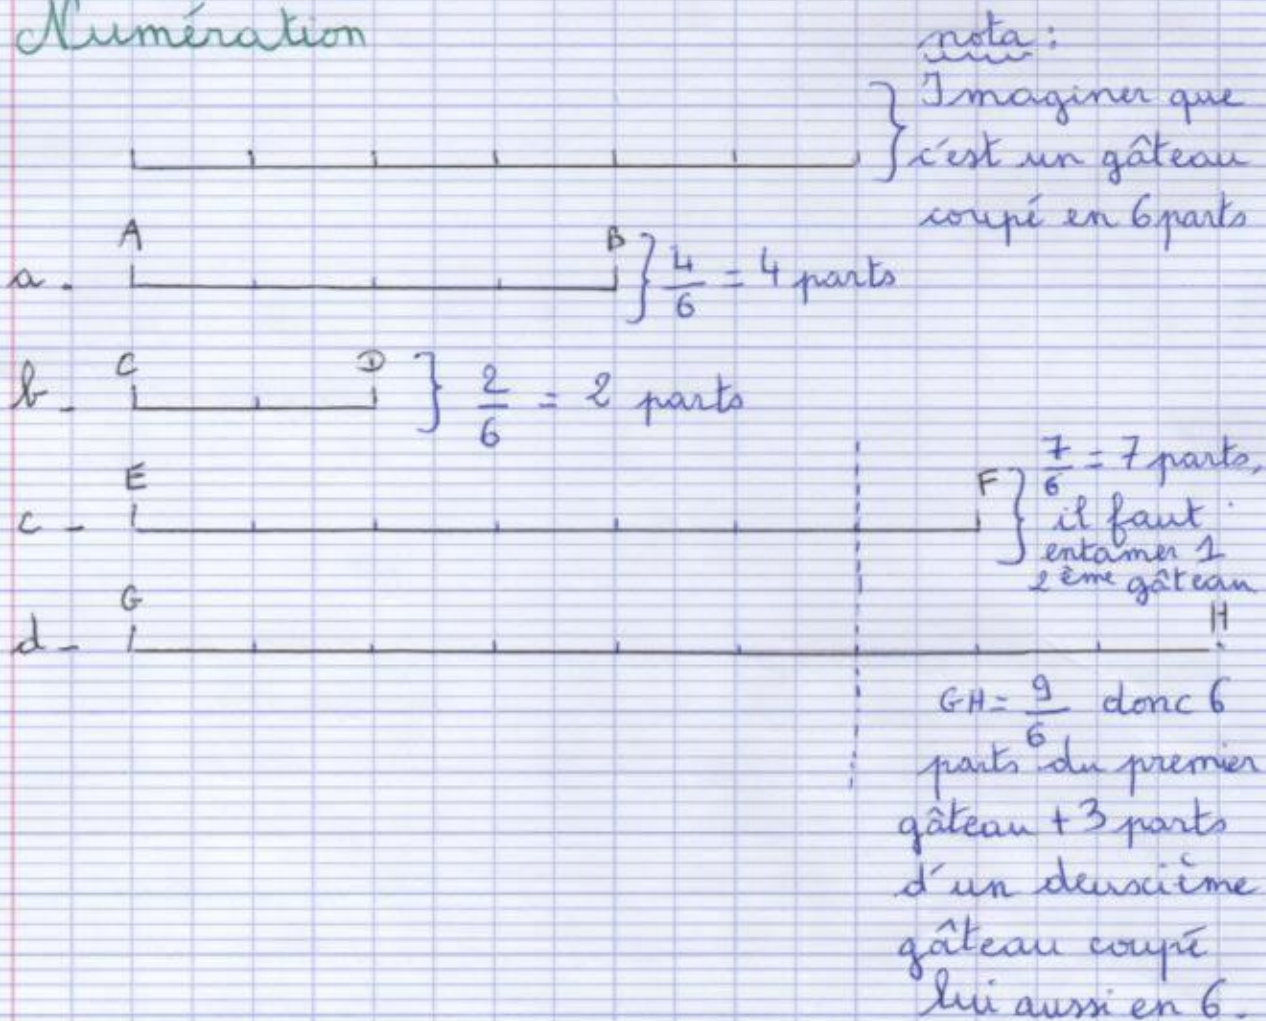 Numération
nota :
Imaginer que
c'est un gâteau
coupé en 6 parts
A B
a. 4/6 = 4 parts
C D
b- 2/6 = 2 parts
E F
c- 7/6 = 7 parts,
il faut
entamer 1
2ème gâteau
G H
d-
GH = 9/6 donc 6
parts du premier
gâteau + 3 parts
d'un deuxième
gâteau coupé
lui aussi en 6.